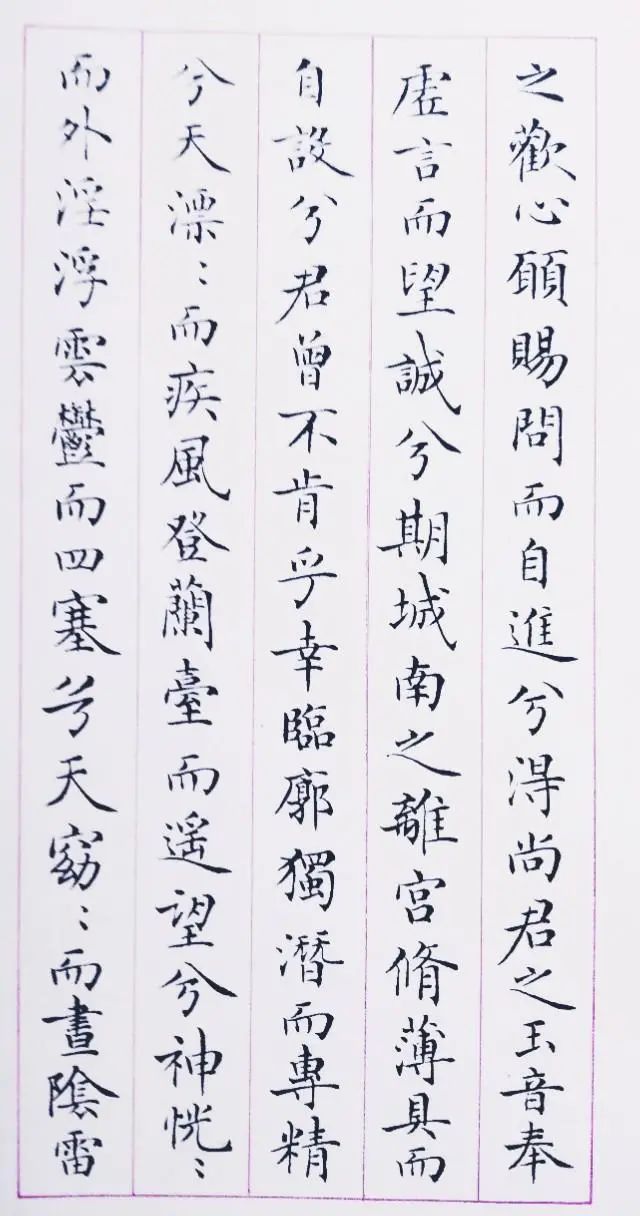 之歡心願賜問而自進兮淂尚君之玉音奉
虛言而望誠兮期城南之離宮脩薄具而
自設兮君曾不肯乎幸臨廓獨潛而專精
兮天漂〻而疾風登蘭臺而遥望兮神恍〻
而外淫浮雲鬱而四塞兮天窈〻而晝陰雷